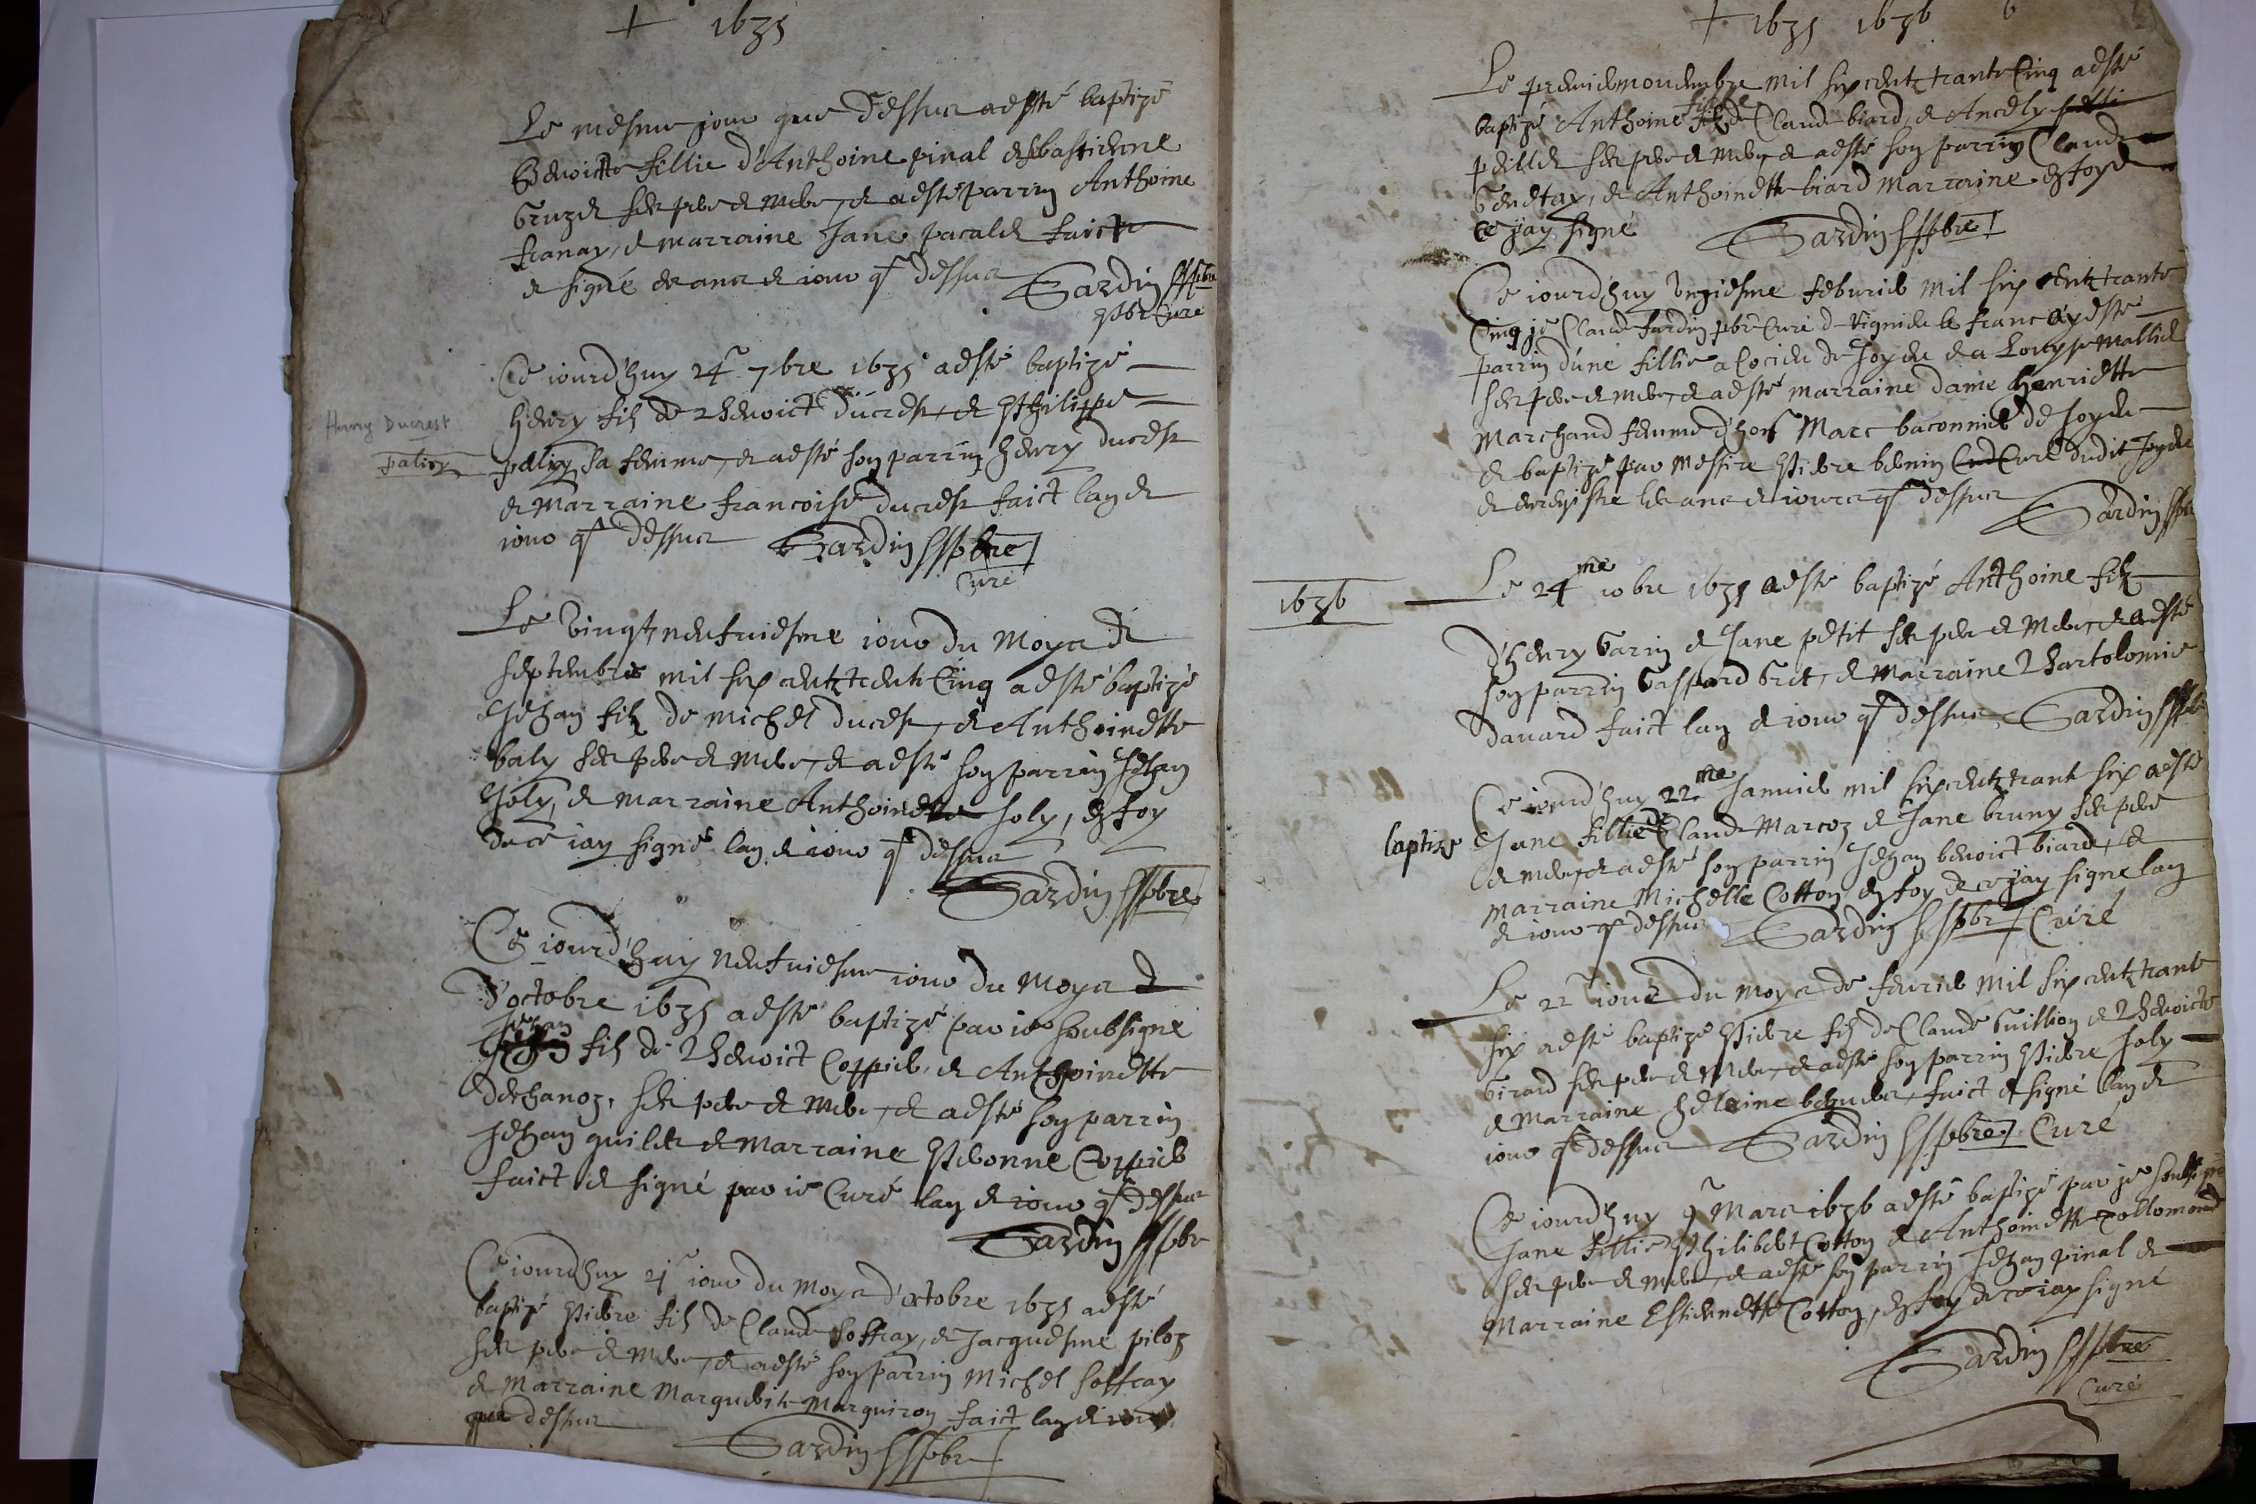 + 1635
Le mesme jour que dessus a esté baptizé
Benoitte fillie d'Anthoine pinal et sebastienne
ses pere et mere, et a esté parrin Anthoine
franay, et marraine Jane pacalet faict
et signé les ans et jour q dessus Sardin
pbre Curé
Ce jourd'huy 24 7bre 1635 a esté baptizé
Henry Ducrest
henry filz de Benoict ducrest, et Philippe
patioz
sa femme, et a esté son parrin henry ducrest
et Marraine francoise ducrest faict lan et
jour q dessus Sardin pbre
Curé
Le vingt neufuiesme jour du Moys de
septembre mil six centz trente Cinq a esté baptizé
Jehan filz de michel ducrest, et Anthoinette
baly ses pere et Mere, et a esté son parrin Jehan
Joly, et marraine Anthoinette Joly, en foy
de ce jay signé lan et jour q dessus
Sardin pbre
Ce jourd'huy neufuiesme jour du Moys
d'octobre 1635 a esté baptizé par je soubsigné
Jehan
filz de Benoict Coppier et Anthoinette
ses pere et Mere, et a esté son parrin
Jehan guillet et Marraine Pieronne Coppier
faict et signé par je Curé lan et jour q dessus
Sardin pbre
Ce jourd'huy 21 jour du Moys d'octobre 1635 a esté
baptizé Pierre filz de Claude soffray, et Jacquesme piloz
ses pere et Mere, et a esté son parrin Michel soffray
et Marraine Marguerite Marguiron faict lan et jour
que dessus Sardin pbre
+ 1635 1636 6
Le premier nouembre mil six centz trante Cinq a esté
baptizé Anthoine filz de Claude biard, et Ancely
ses pere et Mere et a esté son parrin Claude
et Anthoinette biard Marraine en foy de
ce jay signé Sardin pbre
Ce jourd'huy unziesme feburier mil six centz trante
Cinq je Claude Sardin pbre Curé de a esté
parrin d'une fillie a et a Louyse Mallier
ses pere et mere, et a esté marraine dame henriette
Marchand femme Marc baconnier
et baptizé par Messire Pierre Curé dudit
et enregistré les ans et jours q dessus Sardin pbre
1636
Le 24 me 10bre 1635 a esté baptizé Anthoine filz
d'henry Garin et Jane petit ses pere et Mere, et a esté
son parrin Gaspard et Marraine Bartolomie
dauard faict lan et jour q dessus Sardin
Ce jourd'huy 22 me Januier mil six centz trante six a esté
baptize Jane fillie de Claude Marcoz et Jane bruny ses pere
et mere, et a esté son parrin Jehan benoict biard, et
marraine Michelle Cotton en foy de ce jay signé lan
et jour q dessus Sardin pbre Curé
Le 22 jour du moys de feurier mil six centz trante
six a esté baptizé Pierre filz de Claude Guillion et Benoicte
Girard ses pere et Mere, et a esté son parrin Pierre Joly
et Marraine faict et signé lan et
jour q dessus Sardin pbre Curé
Ce jourd'huy 9 Mars 1636 a esté baptizé par je soubsigné
Jane fillie Philibert Cotton et Anthoinette Collomond
ses pere et mere, et a esté son parrin Jehan pinal et
Marraine Estiennette Cotton, en foy de ce jay signé
Sardin pbre
Curé